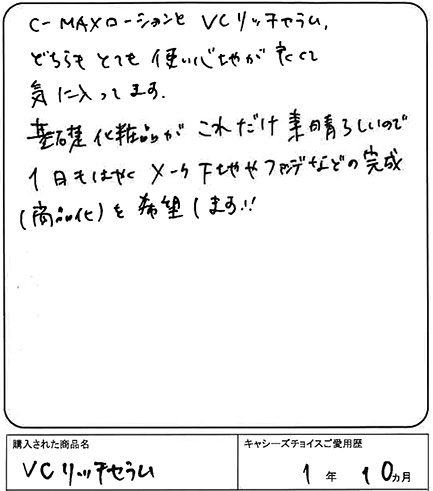 C-MAXローションと VCリッチセラム、
どちらも とても 使い心地が良くて
気に入ってます。
基礎化粧品が これだけ 素晴らしいので
1日もはやく メーク下地やファンデなどの完成
(商品化)を 希望します!!
購入された商品名
キャシーズチョイスご愛用歴
VCリッチセラム
1年 10ヵ月